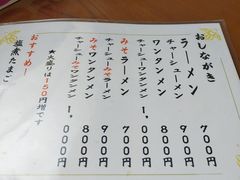 おしながき
ラーメン 700円
チャーシューメン 900円
ワンタンメン 800円
チャーシューワンタンメン 1,000円
みそラーメン 700円
チャーシューみそラーメン 900円
みそワンタンメン 800円
チャーシューみそワンタンメン 1,000円
★大盛りは150円増です
おすすめ!
塩煮たまご